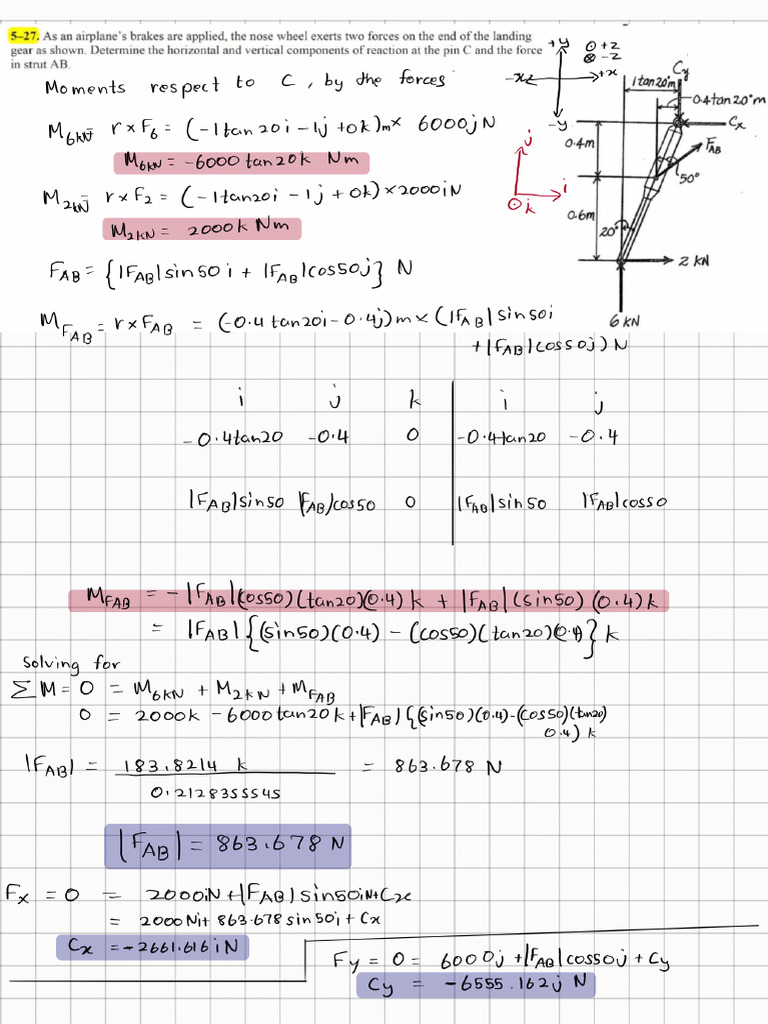 5–27. As an airplane's brakes are applied, the nose wheel exerts two forces on the end of the landing
gear as shown. Determine the horizontal and vertical components of reaction at the pin C and the force
in strut AB.
Moments respect to C, by the forces
M6kN = r x F6 = (-1tan20i - 1j + 0k)m x 6000j N
M6kN = -6000 tan20k Nm
M2kN = r x F2 = (-1tan20i - 1j + 0k) x 2000i N
M2kN = 2000k Nm
FAB = {|FAB|sin50i + |FAB|cos50j} N
MFAB = r x FAB = (-0.4tan20i - 0.4j)m x (|FAB|sin50i
+ |FAB|cos50j) N
+y
⊙+z
⊗-z
-x
+x
-y
j
i
k
Cy
1tan20°m
0.4tan20°m
Cx
0.4m
FAB
50°
0.6m
20°
2 KN
6 KN
i j k i j
-0.4tan20 -0.4 0 -0.4tan20 -0.4
|FAB|sin50 |FAB|cos50 0 |FAB|sin50 |FAB|cos50
MFAB = -|FAB|(cos50)(tan20)(0.4)k + |FAB|(sin50)(0.4)k
= |FAB|{(sin50)(0.4) - (cos50)(tan20)(0.4)} k
Solving for
ΣM = 0 = M6kN + M2kN + MFAB
0 = 2000k - 6000tan20k + |FAB|{(sin50)(0.4) - (cos50)(tan20)
0.4) k
|FAB| = 183.8214 k = 863.678 N
0.2128355545
|FAB| = 863.678 N
Fx = 0 = 2000iN + |FAB|sin50iN + Cx
= 2000Ni + 863.678sin50i + Cx
Cx = -2661.616i N
Fy = 0 = 6000j + |FAB|cos50j + Cy
Cy = -6555.162j N